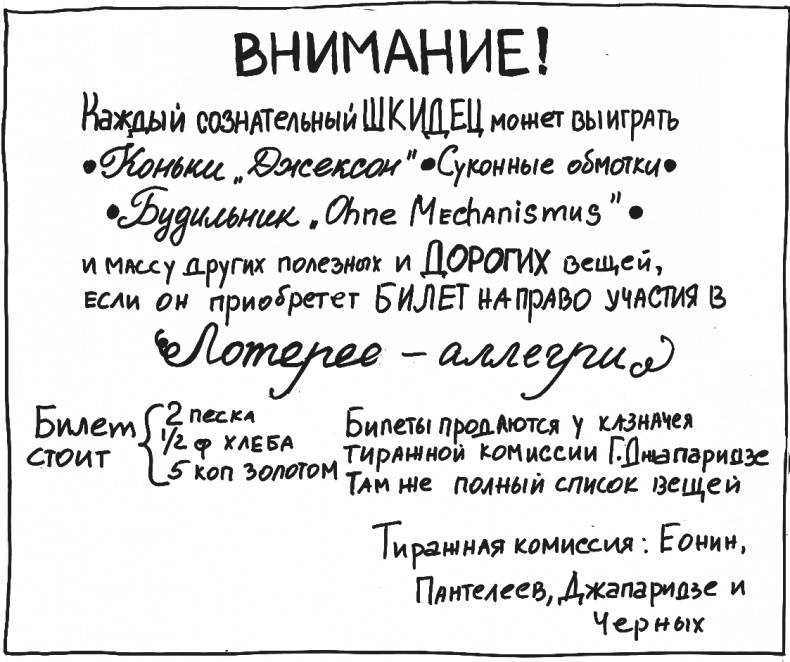 ВНИМАНИЕ!
Каждый сознательный ШКИДЕЦ может выиграть
•Коньки „Джексон"•Суконные обмотки•
•Будильник „Ohne Mechanismus"•
и массу других полезных и ДОРОГИХ вещей,
если он приобретет БИЛЕТ НА ПРАВО УЧАСТИЯ В
Лотерее – аллегри
Билет стоит { 2 песка
1/2 ф хлеба
5 коп золотом
Билеты продаются у казначея
тиражной комиссии Г. Джапаридзе
Там же полный список вещей
Тиражная комиссия: Еонин,
Пантелеев, Джапаридзе и
Черных